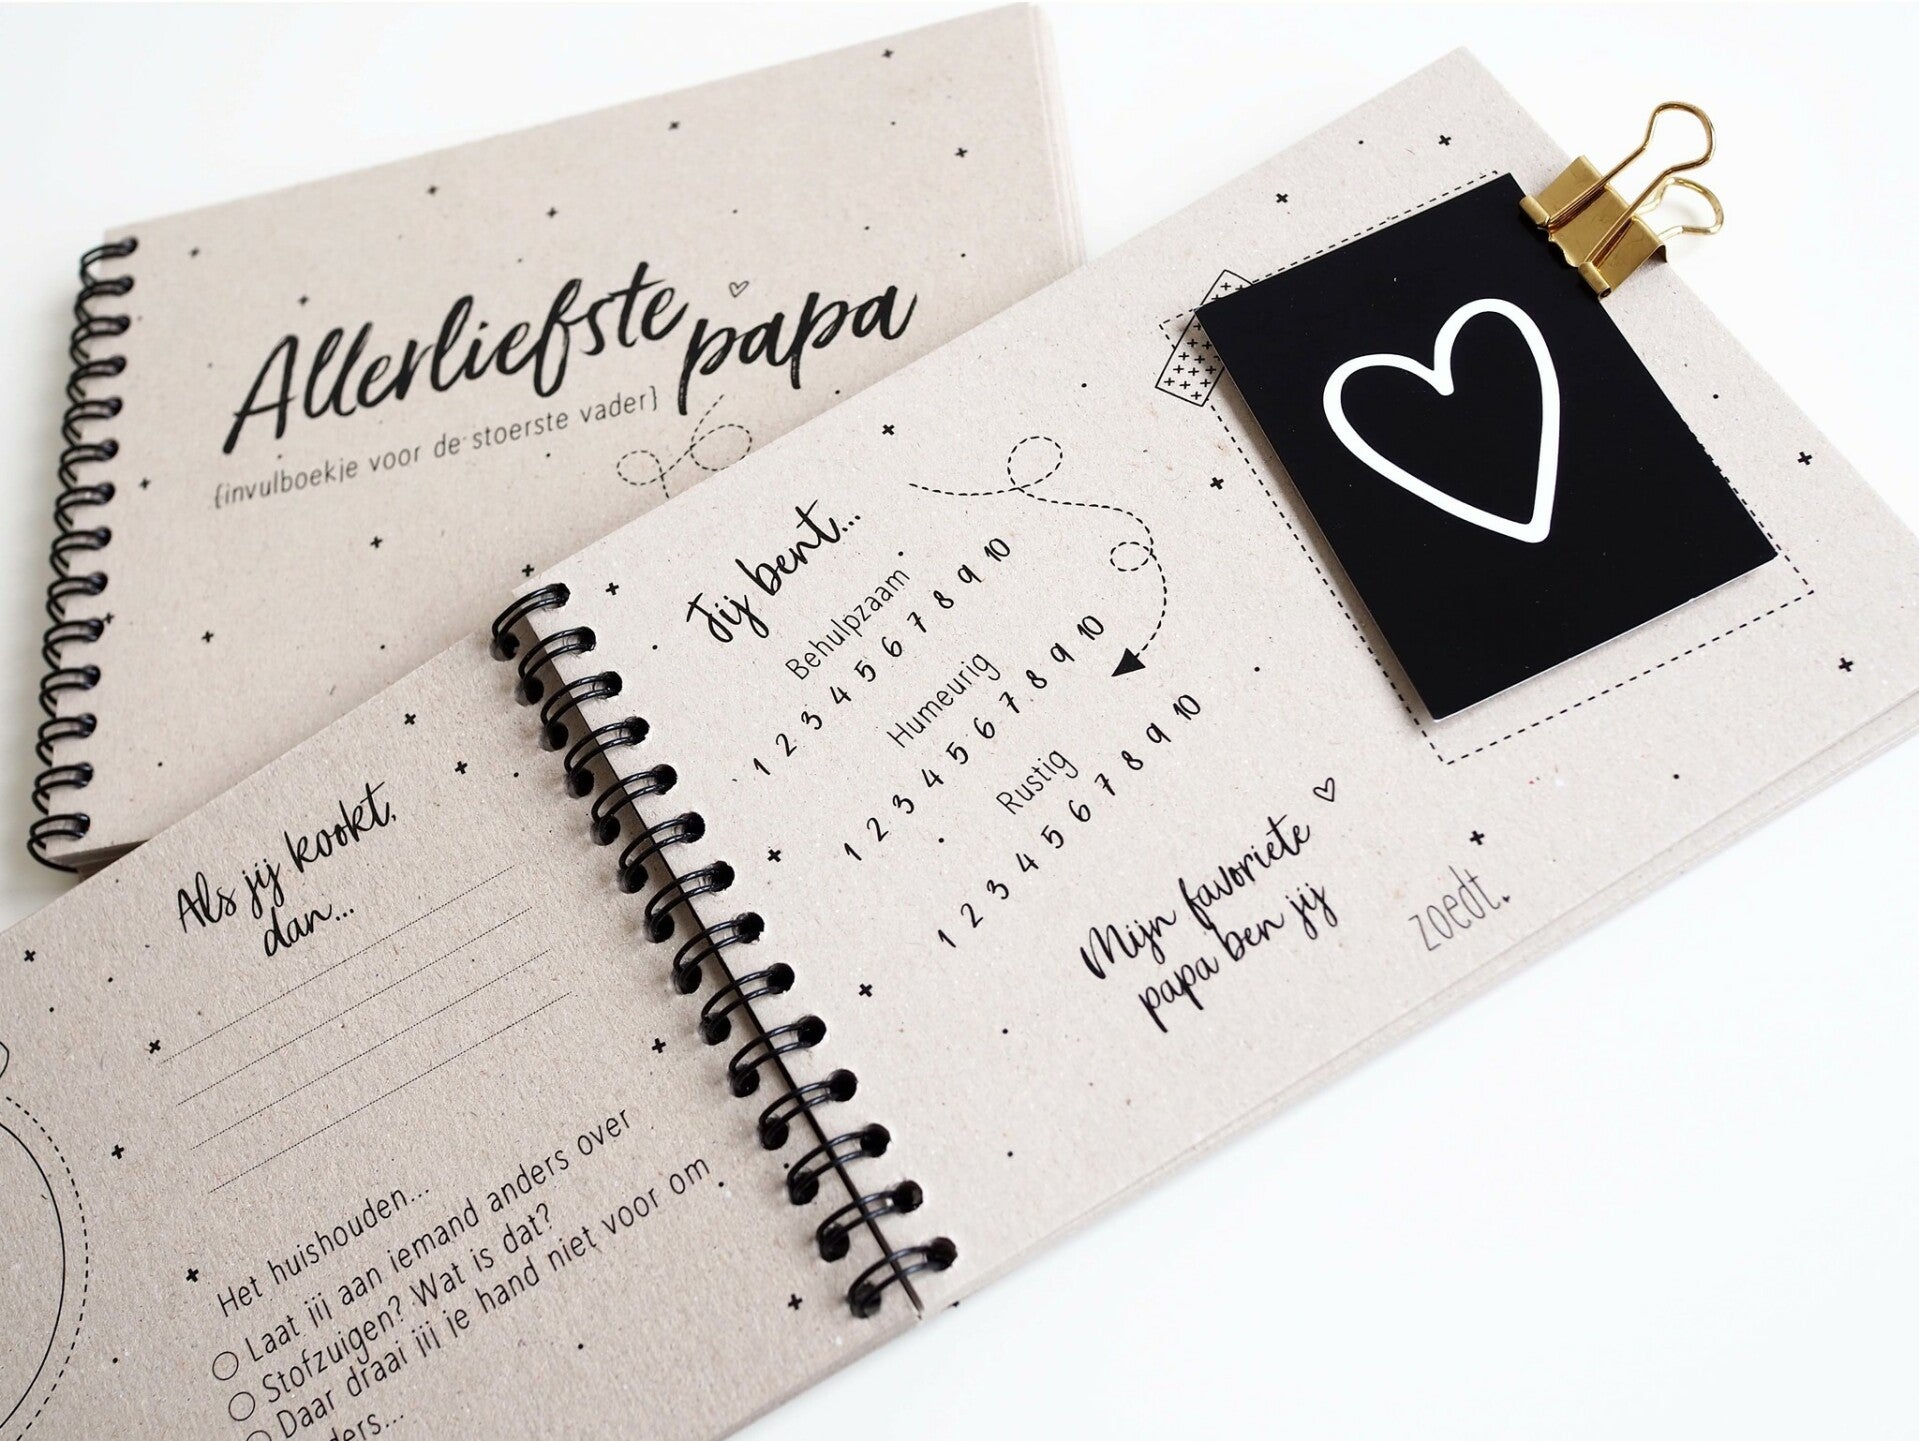 Allerliefste papa
{invulboekje voor de stoerste vader}
Als jij kookt,
dan...
Het huishouden...
Laat jij aan iemand anders over
Stofzuigen? Wat is dat?
Daar draai jij je hand niet voor om
ders...
Jij bent...
Behulpzaam
1 2 3 4 5 6 7 8 9 10
Humeurig
1 2 3 4 5 6 7 8 9 10
Rustig
1 2 3 4 5 6 7 8 9 10
Mijn favoriete
papa ben jij
zoedt.